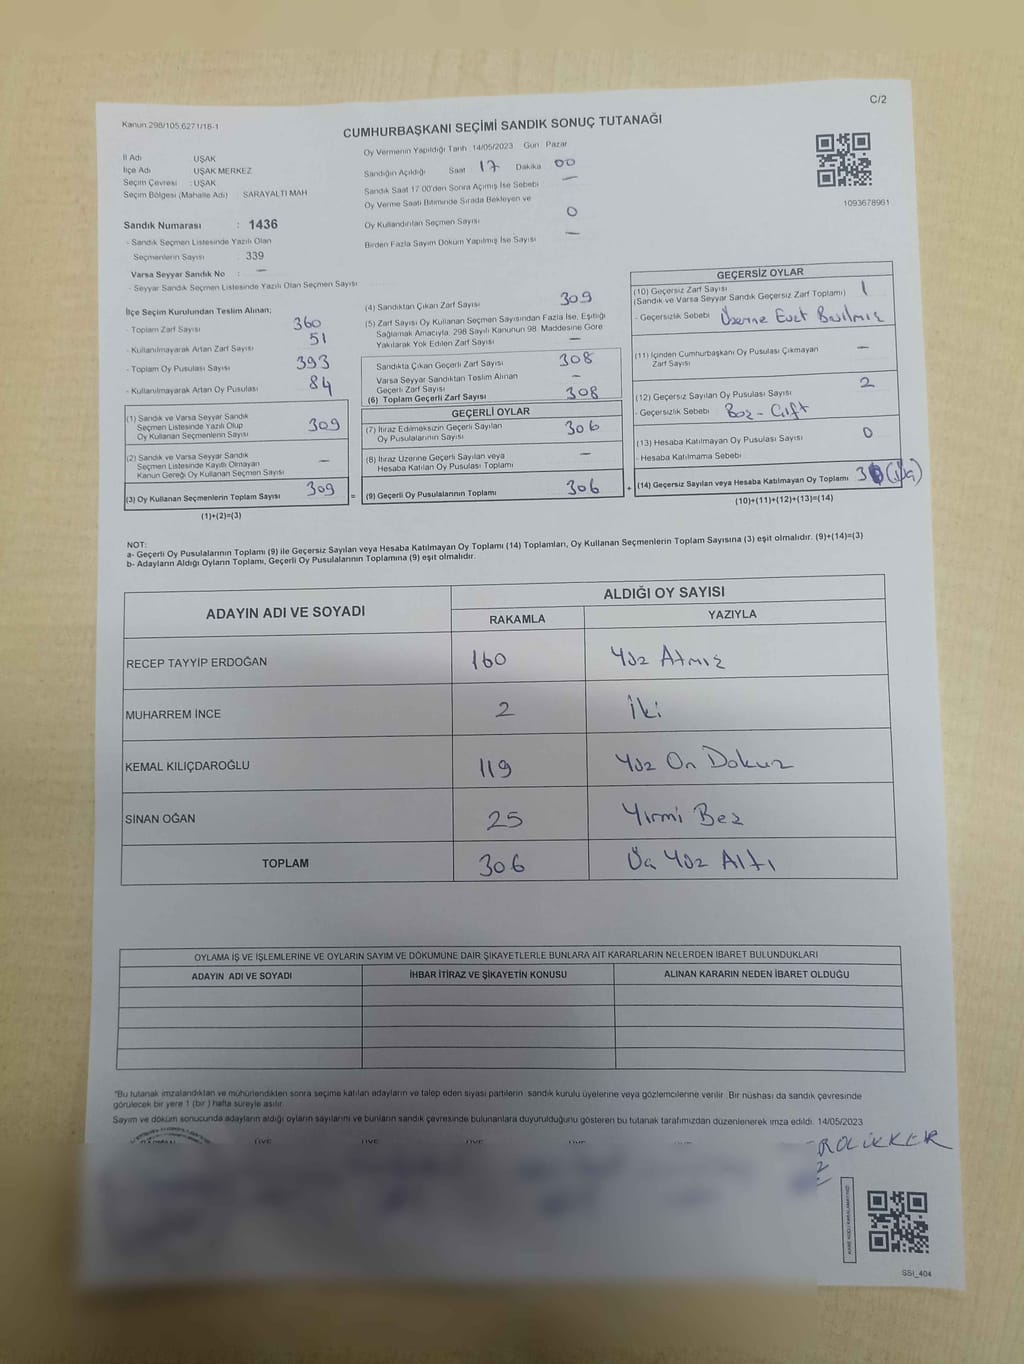 C/2
Kanun:298/105,6271/18-1
CUMHURBAŞKANI SEÇİMİ SANDIK SONUÇ TUTANAĞI
İl Adı UŞAK
İlçe Adı UŞAK MERKEZ
Seçim Çevresi : UŞAK
Seçim Bölgesi (Mahalle Adı) SARAYALTI MAH
Sandık Numarası : 1436
- Sandık Seçmen Listesinde Yazılı Olan
Seçmenlerin Sayısı 339
Varsa Seyyar Sandık No : —
- Seyyar Sandık Seçmen Listesinde Yazılı Olan Seçmen Sayısı
Oy Vermenin Yapıldığı Tarih 14/05/2023 Gün Pazar
Sandığın Açıldığı Saat 17 Dakika 00
Sandık Saat 17 00'den Sonra Açılmış İse Sebebi —
Oy Verme Saati Bitiminde Sırada Bekleyen ve
Oy Kullandırılan Seçmen Sayısı 0
Birden Fazla Sayım Döküm Yapılmış İse Sayısı —
1093678961
İlçe Seçim Kurulundan Teslim Alınan;
- Toplam Zarf Sayısı 360
- Kullanılmayarak Artan Zarf Sayısı 51
- Toplam Oy Pusulası Sayısı 393
- Kullanılmayarak Artan Oy Pusulası 84
(1) Sandık ve Varsa Seyyar Sandık
Seçmen Listesinde Yazılı Olup
Oy Kullanan Seçmenlerin Sayısı 309
(2) Sandık ve Varsa Seyyar Sandık
Seçmen Listesinde Kayıtlı Olmayan
Kanun Gereği Oy Kullanan Seçmen Sayısı —
(3) Oy Kullanan Seçmenlerin Toplam Sayısı 309
(1)+(2)=(3)
(4) Sandıktan Çıkan Zarf Sayısı 309
(5) Zarf Sayısı Oy Kullanan Seçmen Sayısından Fazla İse, Eşitliği
Sağlamak Amacıyla, 298 Sayılı Kanunun 98. Maddesine Göre
Yakılarak Yok Edilen Zarf Sayısı —
Sandıkta Çıkan Geçerli Zarf Sayısı 308
Varsa Seyyar Sandıktan Teslim Alınan
Geçerli Zarf Sayısı —
(6) Toplam Geçerli Zarf Sayısı 308
GEÇERLİ OYLAR
(7) İtiraz Edilmeksizin Geçerli Sayılan
Oy Pusulalarının Sayısı 306
(8) İtiraz Üzerine Geçerli Sayılan veya
Hesaba Katılan Oy Pusulası Toplamı —
= (9) Geçerli Oy Pusulalarının Toplamı 306
GEÇERSİZ OYLAR
(10) Geçersiz Zarf Sayısı 1
(Sandık ve Varsa Seyyar Sandık Geçersiz Zarf Toplamı)
- Geçersizlik Sebebi Üzerine Evet Basılmış
(11) İçinden Cumhurbaşkanı Oy Pusulası Çıkmayan
Zarf Sayısı —
(12) Geçersiz Sayılan Oy Pusulası Sayısı 2
- Geçersizlik Sebebi Boş - Çift
(13) Hesaba Katılmayan Oy Pusulası Sayısı 0
- Hesaba Katılmama Sebebi
+ (14) Geçersiz Sayılan veya Hesaba Katılmayan Oy Toplamı 3 (Üç)
(10)+(11)+(12)+(13)=(14)
NOT:
a- Geçerli Oy Pusulalarının Toplamı (9) ile Geçersiz Sayılan veya Hesaba Katılmayan Oy Toplamı (14) Toplamları, Oy Kullanan Seçmenlerin Toplam Sayısına (3) eşit olmalıdır. (9)+(14)=(3)
b- Adayların Aldığı Oyların Toplamı, Geçerli Oy Pusulalarının Toplamına (9) eşit olmalıdır.
ADAYIN ADI VE SOYADI ALDIĞI OY SAYISI
RAKAMLA YAZIYLA
RECEP TAYYİP ERDOĞAN 160 Yüz Atmış
MUHARREM İNCE 2 İki
KEMAL KILIÇDAROĞLU 119 Yüz On Dokuz
SİNAN OĞAN 25 Yirmi Beş
TOPLAM 306 Üç Yüz Altı
OYLAMA İŞ VE İŞLEMLERİNE VE OYLARIN SAYIM VE DÖKÜMÜNE DAİR ŞİKAYETLERLE BUNLARA AİT KARARLARIN NELERDEN İBARET BULUNDUKLARI
ADAYIN ADI VE SOYADI İHBAR İTİRAZ VE ŞİKAYETİN KONUSU ALINAN KARARIN NEDEN İBARET OLDUĞU
"Bu tutanak imzalandıktan ve mühürlendikten sonra seçime katılan adayların ve talep eden siyasi partilerin sandık kurulu üyelerine veya gözlemcilerine verilir. Bir nüshası da sandık çevresinde
görülecek bir yere 1 (bir ) hafta süreyle asılır.
Sayım ve döküm sonucunda adayların aldığı oyların sayılarını ve bunların sandık çevresinde bulunanlara duyurulduğunu gösteren bu tutanak tarafımızdan düzenlenerek imza edildi. 14/05/2023
SSI_404